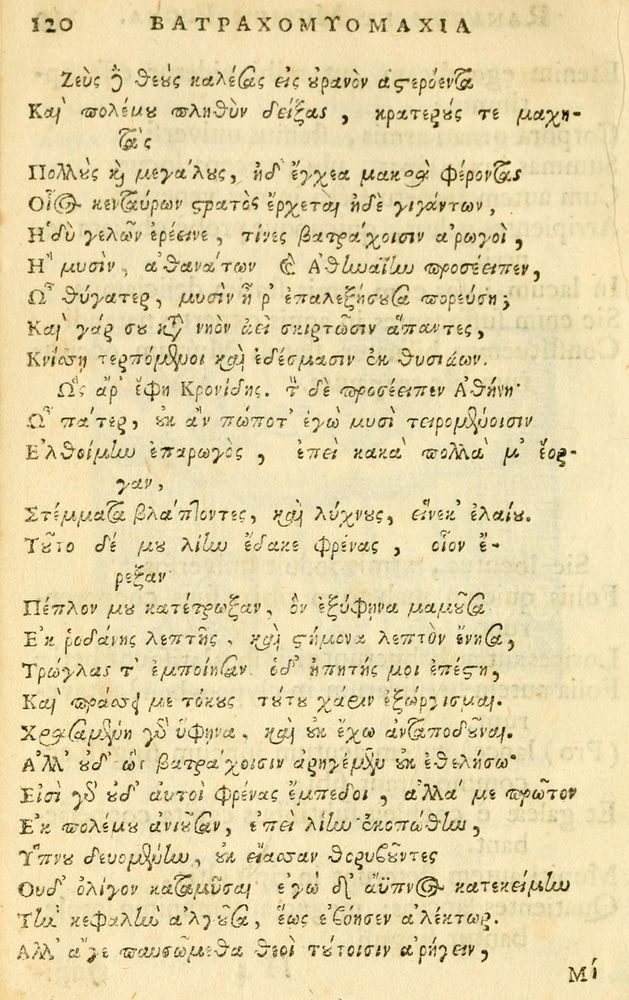 120 ΒΑΤΡΑΧΟΜΥΟΜΑΧΙΑ
Ζεὺς ϳ θεοὺς καλέσας εἰς οὐρανὸν ἀστερόεντα
Καὶ πολέμου πληθὺν δείξας, κρατεροὺς τε μαχη-
τὰς
Πολλοὺς καὶ μεγάλους, ἠδ' ἔγχεα μακρὰ φέροντας
Οἷος κενταύρων στρατὸς ἔρχεται ἠδὲ γιγάντων,
Ηδὺ γελῶν ἐρέεινε, τίνες βατράχοισιν ἀρωγοὶ,
Ἢ μυσὶν, ἀθανάτων καὶ Ἀθηναίην προσέειπεν,
Ὦ θύγατερ, μυσὶν ἦ ῥ' ἐπαλεξήσουσα πορεύσῃ;
Καὶ γάρ σου κατὰ νηὸν ἀεὶ σκιρτῶσιν ἅπαντες,
Κνίσσῃ τερπόμενοι καὶ ἐδέσμασιν ἐκ θυσιάων.
Ὣς ἄρ' ἔφη Κρονίδης. τὸν δὲ προσέειπεν Ἀθήνη·
Ὦ πάτερ, οὐκ ἂν πώποτ' ἐγὼ μυσὶ τειρομένοισιν
Ἐλθοίμην ἐπαρωγὸς, ἐπεὶ κακὰ πολλὰ μ' ἔορ-
γαν,
Στέμματα βλάπτοντες, καὶ λύχνους, εἵνεκ' ἐλαίου.
Τοῦτο δέ μου λίην ἔδακε φρένας, οἷον ἔ-
ρεξαν
Πέπλον μου κατέτρωξαν, ὃν ἐξύφηνα καμοῦσα
Ἐκ ῥοδάνης λεπτῆς, καὶ στήμονα λεπτὸν ἔνησα,
Τρώγλας τ' ἐμποίησαν. ὁδ' ἠπητής μοι ἐπέστη,
Καὶ πράσσει με τόκους τούτου χάριν ἐξώργισμαι.
Χρησαμένη γὰρ ὕφηνα, καὶ οὐκ ἔχω ἀνταποδοῦναι.
Ἀλλ' οὐδ' ὣς βατράχοισιν ἀρηγέμεν οὐκ ἐθελήσω·
Εἰσὶ γὰρ οὐδ' αὐτοὶ φρένας ἔμπεδοι, ἀλλά με πρῶτον
Ἐκ πολέμου ἀνιοῦσαν, ἐπεὶ λίην ἐκοπώθην,
Ὕπνου δευομένην, οὐκ εἴασαν θορυβοῦντες
Οὐδ' ὀλίγον καταμῦσαι ἐγὼ δὲ ἄϋπνος κατεκείμην
Τὴν κεφαλὴν ἀλγοῦσα, ἕως ἐβόησεν ἀλέκτωρ.
Ἀλλ' ἄγε παυσώμεθα θεοὶ τούτοισιν ἀρήγειν,
Μή